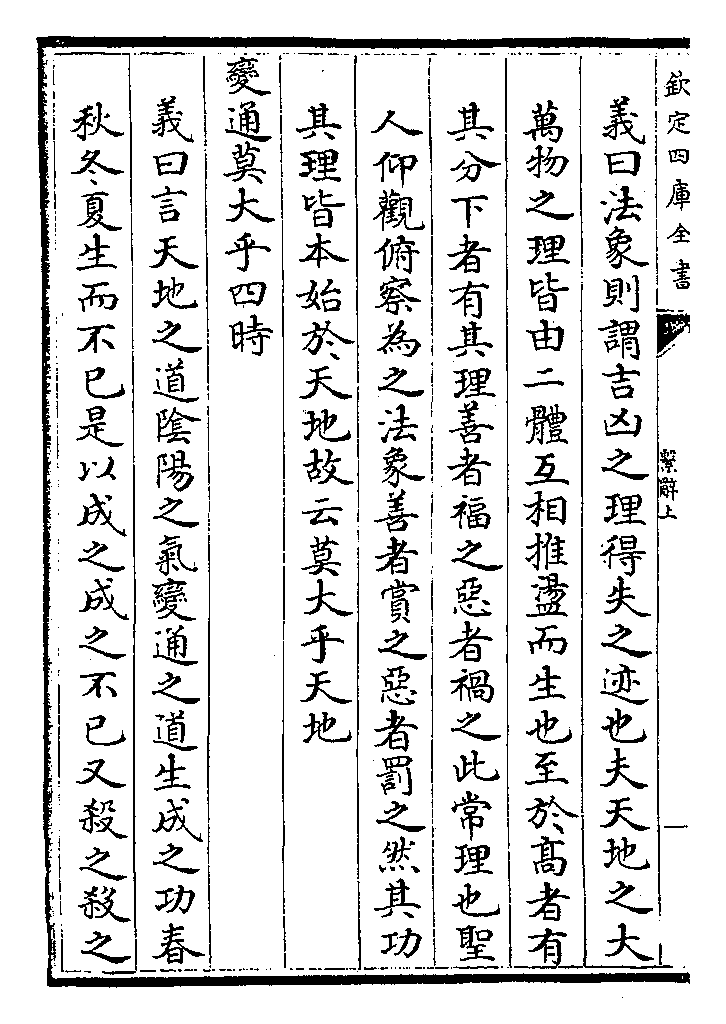 欽定四庫全書
繫辭上
義曰法象則謂吉凶之理得失之迹也夫天地之大
萬物之理皆由二體互相推盪而生也至於髙者有
其分下者有其理善者福之惡者禍之此常理也聖
人仰觀俯察為之法象善者賞之惡者罰之然其功
其理皆本始於天地故云莫大乎天地
變通莫大乎四時
義曰言天地之道隂陽之氣變通之道生成之功春
秋冬夏生而不已是以成之成之不已又殺之殺之